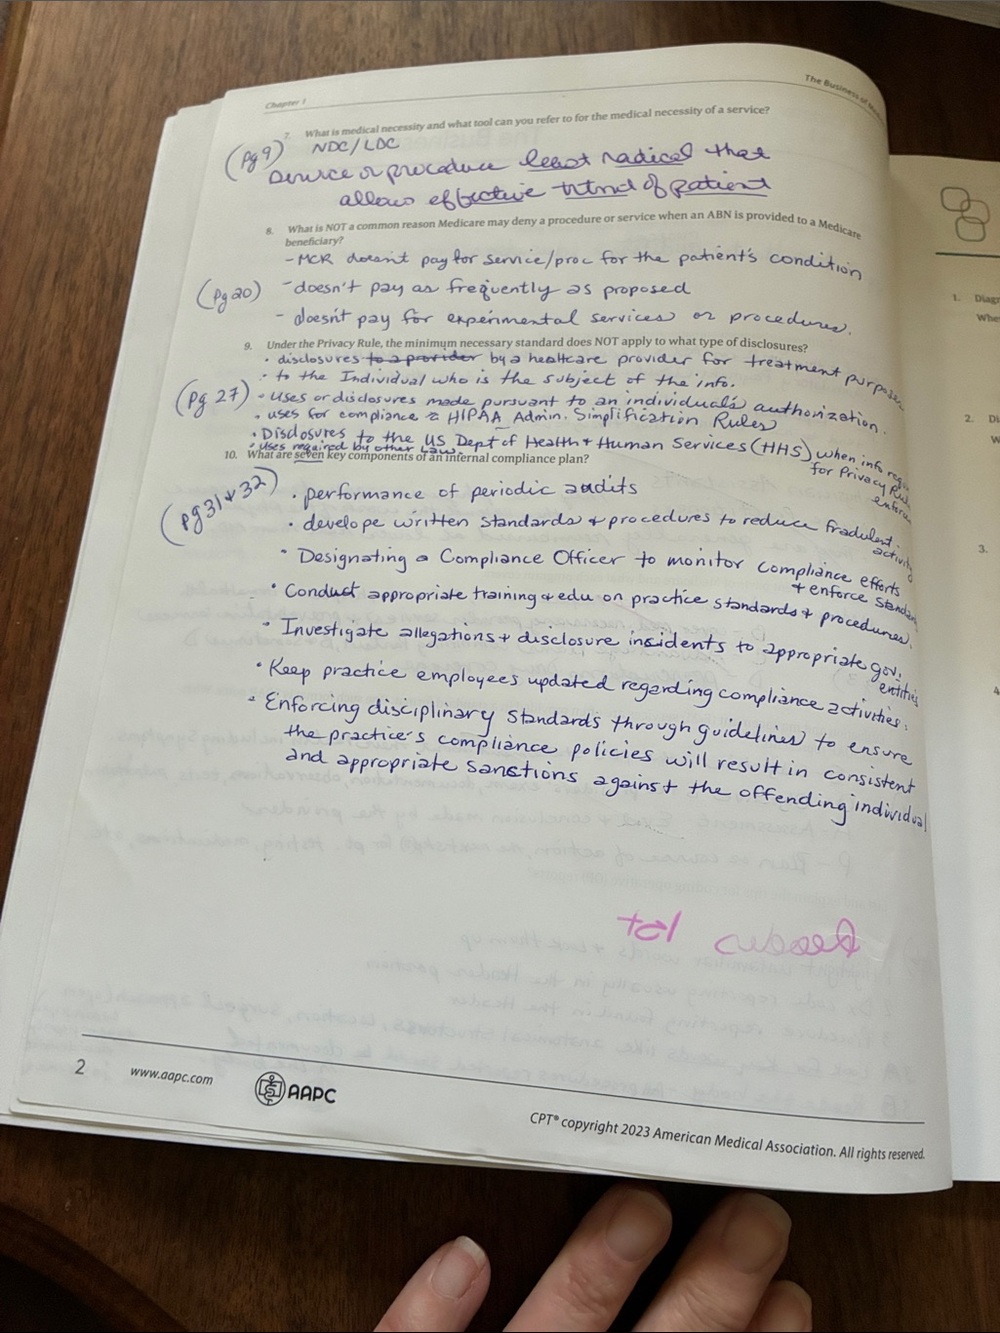 Chapter 1
The Business of
7. What is medical necessity and what tool can you refer to for the medical necessity of a service?
(Pg 9) NDC/LDC
Service or procedure least radical that
allows effective of patient
8. What is NOT a common reason Medicare may deny a procedure or service when an ABN is provided to a Medicare
beneficiary?
- MCR doesn't pay for service/proc for the patient's condition
(Pg 20) - doesn't pay as frequently as proposed
- doesn't pay for experimental services or procedures.
9. Under the Privacy Rule, the minimum necessary standard does NOT apply to what type of disclosures?
• disclosures to a provider by a healtcare provider for treatment purposes
• to the Individual who is the subject of the info.
(Pg 27) • Uses or disclosures made pursuant to an individual's authorization.
• uses for compliance HIPAA Admin. Simplification Rules
• Disclosures to the US Dept of Health + Human Services (HHS) when info
for Privacy
• Uses required by other Law.
10. What are seven key components of an internal compliance plan?
(Pg 31 + 32) • performance of periodic audits
• develope written standards + procedures to reduce fradulent
activity
• Designating a Compliance Officer to monitor compliance efforts
+ enforce
• Conduct appropriate training + edu on practice standards + procedures.
• Investigate allegations + disclosure incidents to appropriate gov.
entities
• Keep practice employees updated regarding compliance activities.
• Enforcing disciplinary standards through guidelines to ensure
the practice's compliance policies will result in consistent
and appropriate sanctions against the offending individual
2 www.aapc.com AAPC
CPT® copyright 2023 American Medical Association. All rights reserved.
1. Diagn
2.
3.
4